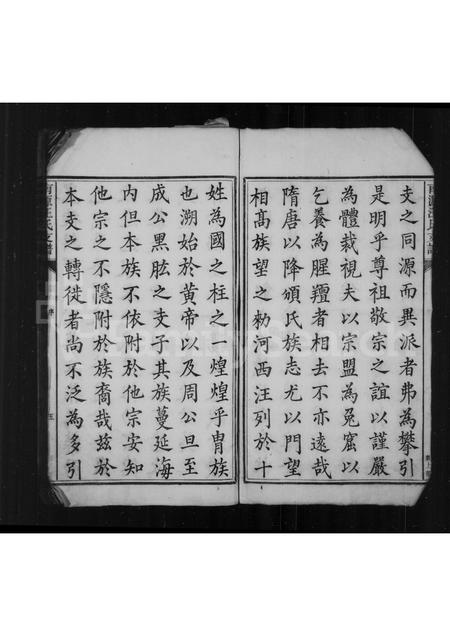 支之同源而異派者弗為攀引
是明乎尊祖敬宗之誼以謹嚴
為體裁視夫以宗盟為兔窟以
乞養為腥羶者相去不亦遠哉
隋唐以降頒氏族志尤以門望
相髙族望之勑河西汪列於十
姓為國之柱之一煌煌乎胄族
也溯始於黄帝以及周公旦至
成公黒肱之支子其族蔓延海
内但本族不依附於他宗安知
他宗之不隱附於族裔哉兹於
本支之轉徙者尚不泛為多引
序
五